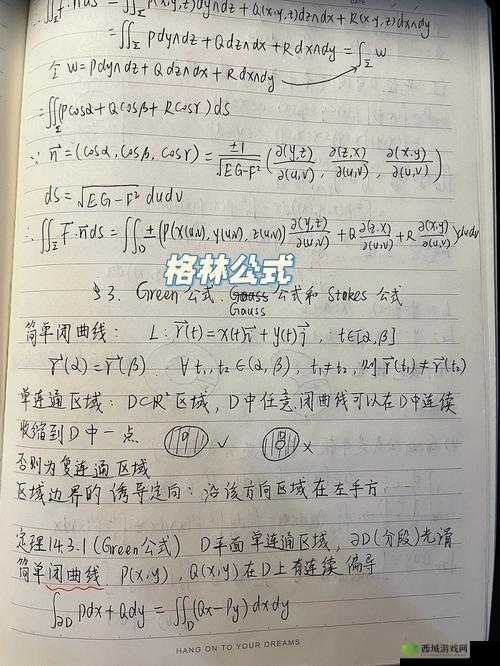 ∬_Σ F⃗·n⃗ds = ∬_Σ P(x,y,z)dy∧dz + Q(x,y,z)dz∧dx + R(x,y,z)dx∧dy
= ∬_Σ Pdy∧dz + Qdz∧dx + Rdx∧dy = ∫_Σ W
令 W = Pdy∧dz + Qdz∧dx + Rdx∧dy
= ∬_Σ (Pcosα + Qcosβ + Rcosγ) ds
∵ n⃗ = (cosα, cosβ, cosγ) = ±1/√(EG-F²) (∂(y,z)/∂(u,v), ∂(z,x)/∂(u,v), ∂(x,y)/∂(u,v))
ds = √(EG-F²) dudv
∴ ∬_Σ F⃗·n⃗ds = ∬_D ±(P(x(u,v), y(u,v), z(u,v)) ∂(y,z)/∂(u,v) + Q ∂(z,x)/∂(u,v) + R ∂(x,y)/∂(u,v)) dudv
格林公式
§3. Green 公式、Gauss 公式和 Stokes 公式
简单闭曲线: L: r⃗(t) = x(t)i⃗ + y(t)j⃗, t∈[α, β]
r⃗(α) = r⃗(β). ∀ t₁, t₂ ∈ (α, β), t₁≠t₂, 则 r⃗(t₁) ≠ r⃗(t₂)
单连通区域: D⊂R² 区域, D中任意闭曲线可以在D中连续
收缩到D中一点 ✓ ×
否则为复连通区域
区域边界的诱导定向: 沿该方向区域在左手方
定理14.3.1 (Green公式) D平面单连通区域, ∂D(分段)光滑
简单闭曲线 P(x,y), Q(x,y)在D上有连续偏导
∫_∂D Pdx + Qdy = ∬_D (Qx - Py) dxdy
HANG ON TO YOUR DREAMS
西域游戏网